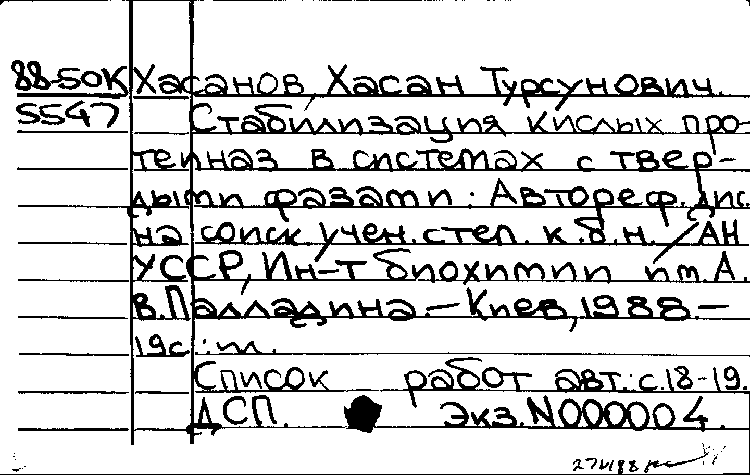 88-50К Хасанов, Хасан Турсунович.
5547 Стабилизация кислых про-
теиназ в системах с твер-
дыми фазами: Автореф. дис.
на соиск. учен. степ. к.б.н. / АН
УССР, Ин-т биохимии им. А.
В. Палладина. - Киев, 1988. -
19с.: ил.
Список работ авт.: с.18-19.
ДСП. Экз. N000004.